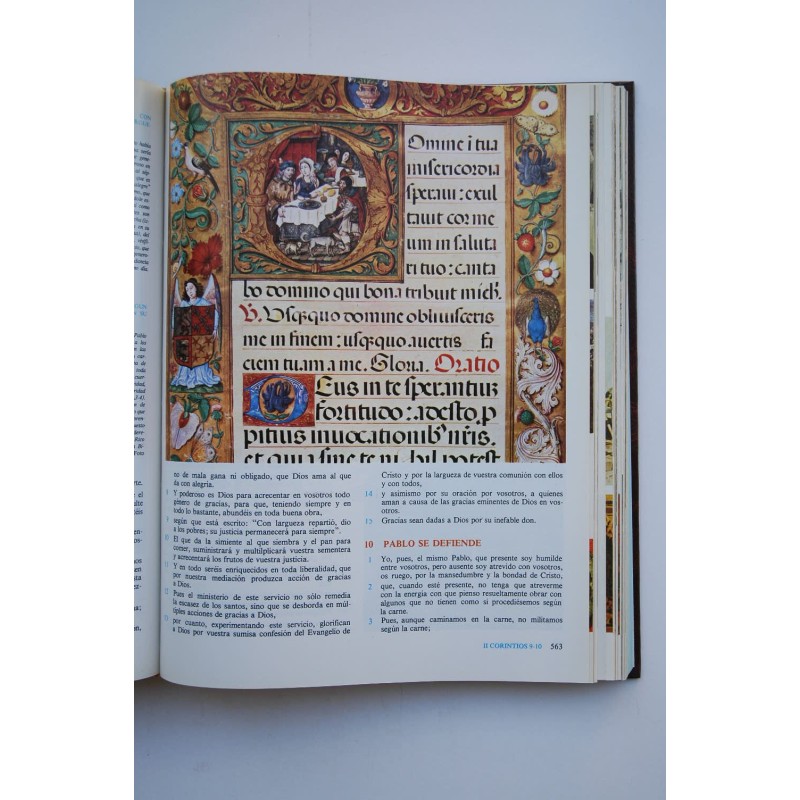 Omine ī tua
misericordia
speraui: exul
tauit cor me
um in saluta
ri tuo: canta
bo domino qui bona tribuit mich.
V. Usq̄quo domine obliuisceris
me in finem: usq̄quo auertis fa
ciem tuam a me. Gloria. Oratio
Deus in te sperantiuz
fortitudo: adesto, p
pitius inuocationib᾿ nr̄is.
et quia sine te ni
no de mala gana ni obligado, que Dios ama al que
da con alegría.
8 Y poderoso es Dios para acrecentar en vosotros todo
género de gracias, para que, teniendo siempre y en
todo lo bastante, abundéis en toda buena obra,
9 según que está escrito: "Con largueza repartió, dio
a los pobres; su justicia permanecerá para siempre".
10 El que da la simiente al que siembra y el pan para
comer, suministrará y multiplicará vuestra sementera
y acrecentará los frutos de vuestra justicia.
11 Y en todo seréis enriquecidos en toda liberalidad, que
por nuestra mediación produzca acción de gracias
a Dios.
12 Pues el ministerio de este servicio no sólo remedia
la escasez de los santos, sino que se desborda en múl-
tiples acciones de gracias a Dios,
13 por cuanto, experimentando este servicio, glorifican
a Dios por vuestra sumisa confesión del Evangelio de
Cristo y por la largueza de vuestra comunión con ellos
y con todos,
14 y asimismo por su oración por vosotros, a quienes
aman a causa de las gracias eminentes de Dios en vos-
otros.
15 Gracias sean dadas a Dios por su inefable don.
10 PABLO SE DEFIENDE
1 Yo, pues, el mismo Pablo, que presente soy humilde
entre vosotros, pero ausente soy atrevido con vosotros,
os ruego, por la mansedumbre y la bondad de Cristo,
2 que, cuando esté presente, no tenga que atreverme
con la energía con que pienso resueltamente obrar con
algunos que no tienen como si procediésemos según
la carne.
3 Pues, aunque caminamos en la carne, no militamos
según la carne;
II CORINTIOS 9-10 563